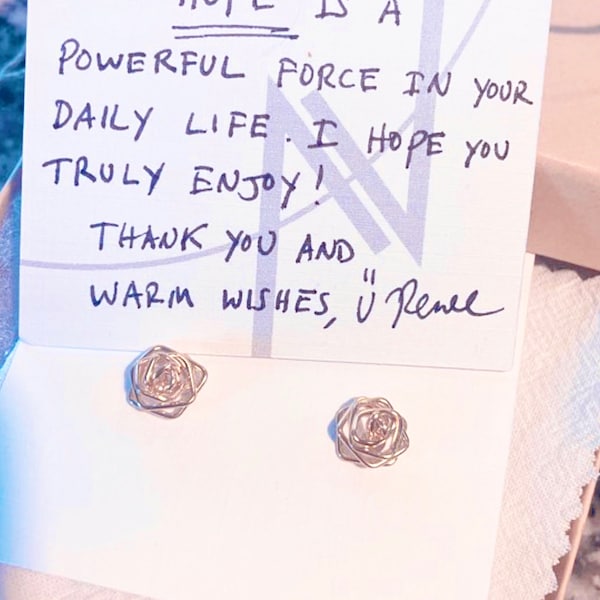 HOPE IS A
POWERFUL FORCE IN YOUR
DAILY LIFE. I HOPE YOU
TRULY ENJOY!
THANK YOU AND
WARM WISHES, Ü Renee